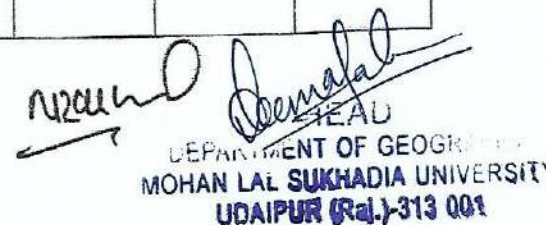 HEAD
DEPARTMENT OF GEOGR
MOHAN LAL SUKHADIA UNIVERSITY
UDAIPUR (Raj.)-313 001